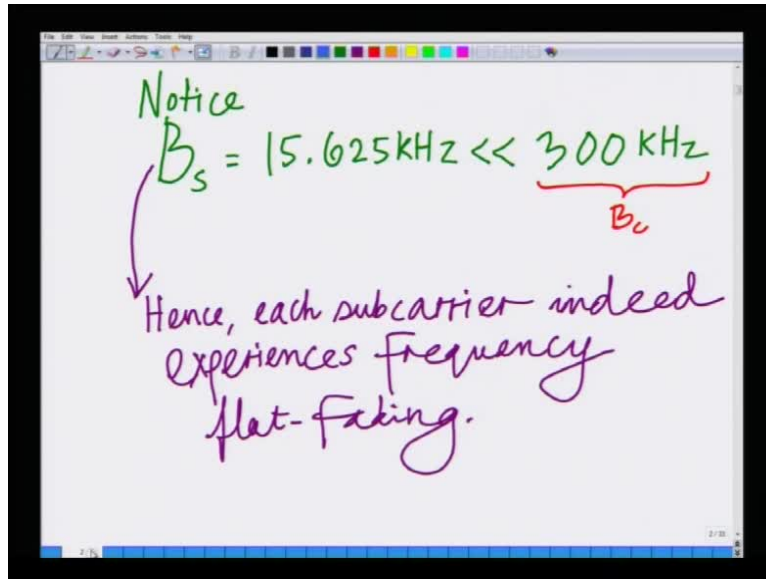 File Edit View Insert Actions Tools Help
Notice
Bs = 15.625KHz << 300 KHz
Bc
Hence, each subcarrier indeed
experiences frequency
flat-fading.
2/33